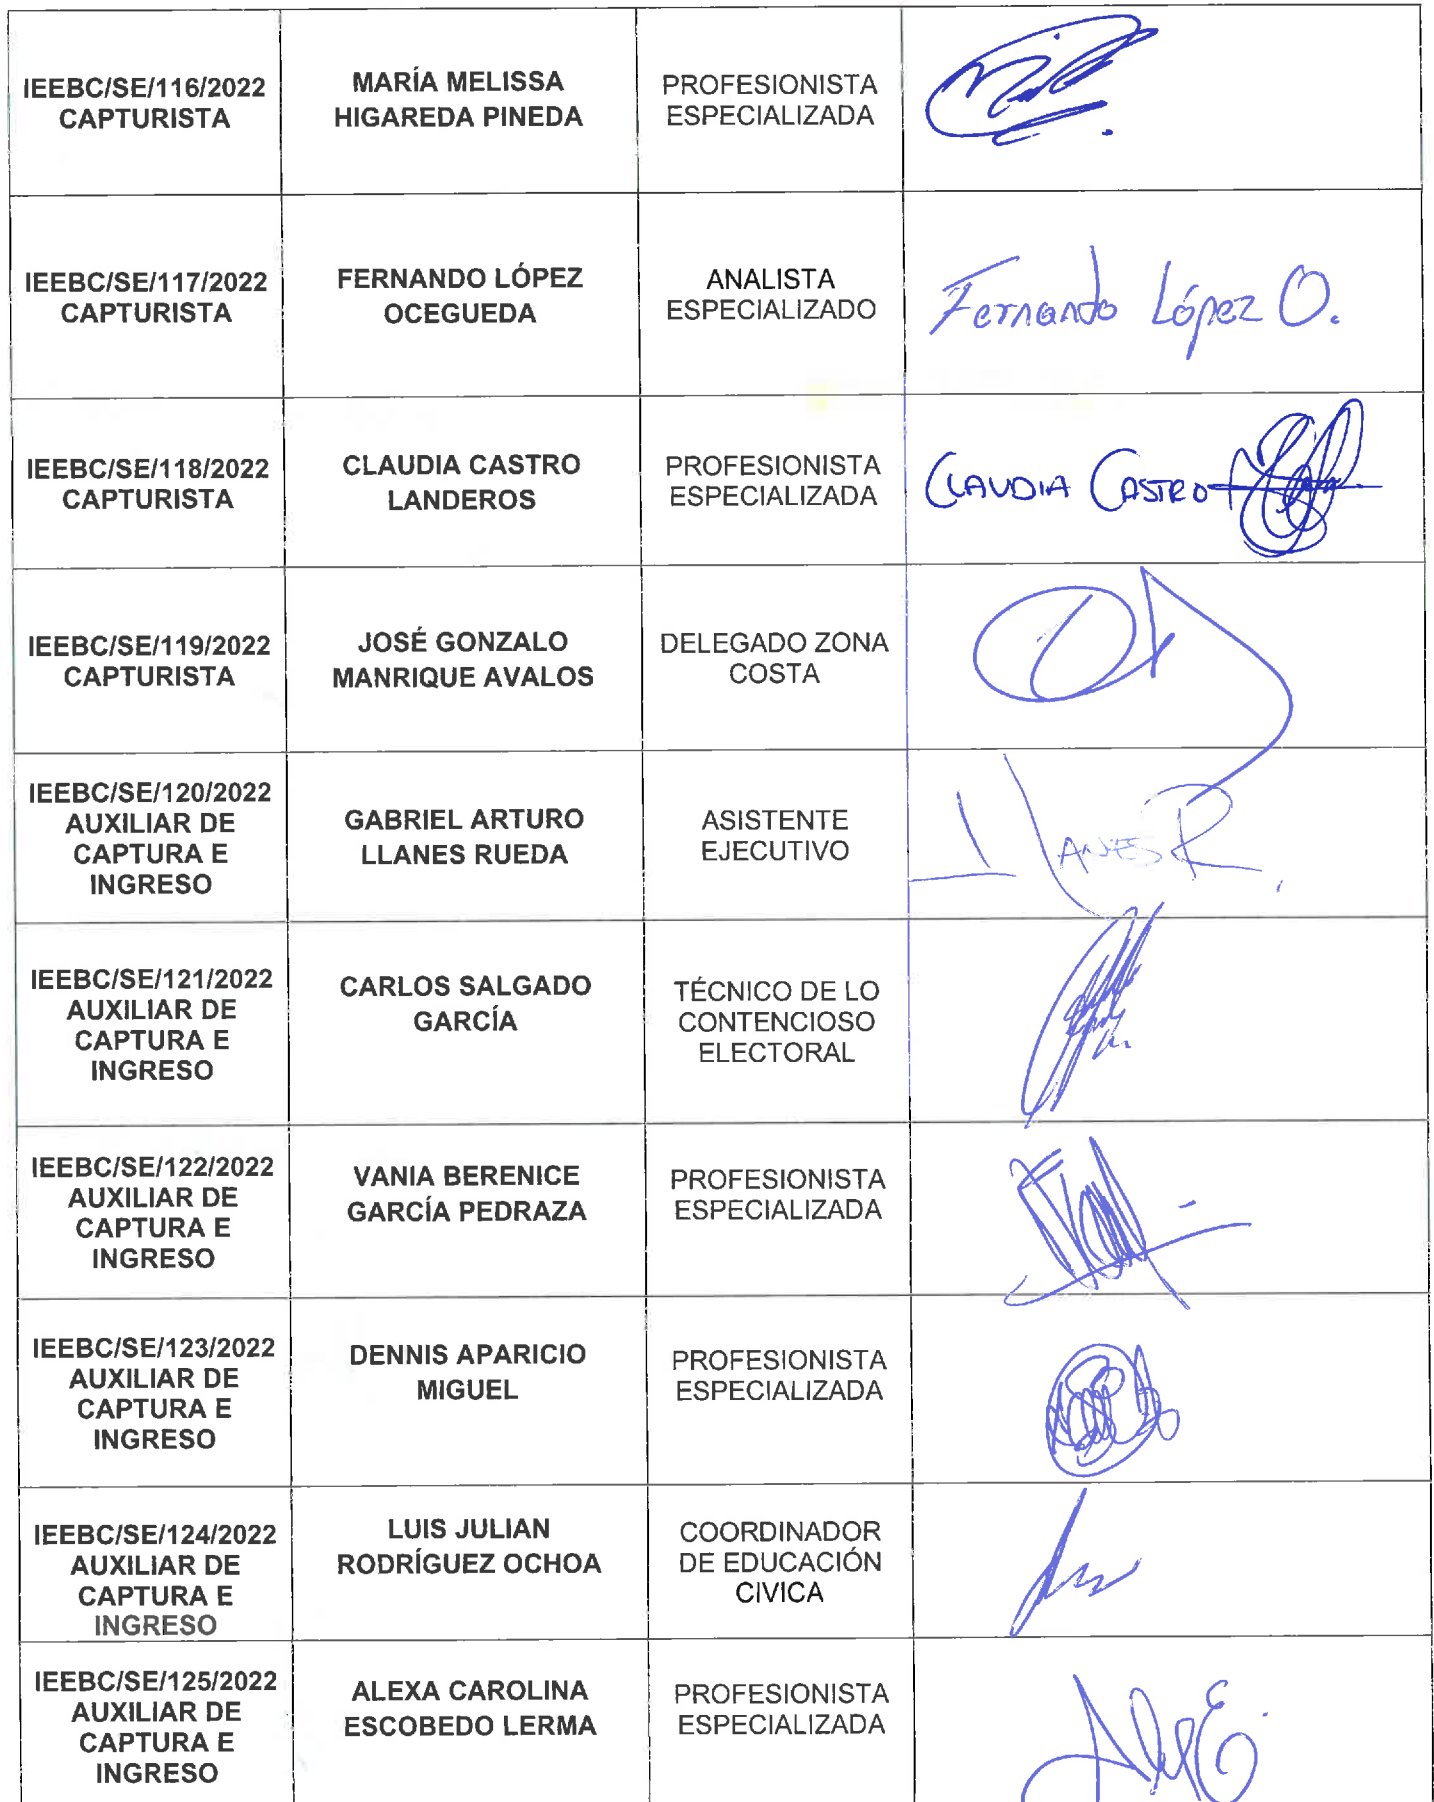 IEEBC/SE/116/2022
CAPTURISTA
MARÍA MELISSA
HIGAREDA PINEDA
PROFESIONISTA
ESPECIALIZADA
IEEBC/SE/117/2022
CAPTURISTA
FERNANDO LÓPEZ
OCEGUEDA
ANALISTA
ESPECIALIZADO
Fernando López O.
IEEBC/SE/118/2022
CAPTURISTA
CLAUDIA CASTRO
LANDEROS
PROFESIONISTA
ESPECIALIZADA
CLAUDIA CASTRO
IEEBC/SE/119/2022
CAPTURISTA
JOSÉ GONZALO
MANRIQUE AVALOS
DELEGADO ZONA
COSTA
IEEBC/SE/120/2022
AUXILIAR DE
CAPTURA E
INGRESO
GABRIEL ARTURO
LLANES RUEDA
ASISTENTE
EJECUTIVO
LLANES R.
IEEBC/SE/121/2022
AUXILIAR DE
CAPTURA E
INGRESO
CARLOS SALGADO
GARCÍA
TÉCNICO DE LO
CONTENCIOSO
ELECTORAL
IEEBC/SE/122/2022
AUXILIAR DE
CAPTURA E
INGRESO
VANIA BERENICE
GARCÍA PEDRAZA
PROFESIONISTA
ESPECIALIZADA
IEEBC/SE/123/2022
AUXILIAR DE
CAPTURA E
INGRESO
DENNIS APARICIO
MIGUEL
PROFESIONISTA
ESPECIALIZADA
IEEBC/SE/124/2022
AUXILIAR DE
CAPTURA E
INGRESO
LUIS JULIAN
RODRÍGUEZ OCHOA
COORDINADOR
DE EDUCACIÓN
CIVICA
IEEBC/SE/125/2022
AUXILIAR DE
CAPTURA E
INGRESO
ALEXA CAROLINA
ESCOBEDO LERMA
PROFESIONISTA
ESPECIALIZADA